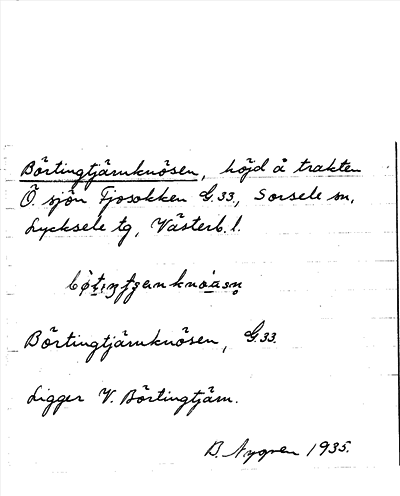 Börtingtjärnknösen, höjd å trakten
Ö. sjön Tjosokken G.33, Sorsele sn,
Lycksele tg, Västerb. l.
Börtingtjärnknösen, G.33.
Ligger V. Börtingtjärn.
B. Nygren 1935.